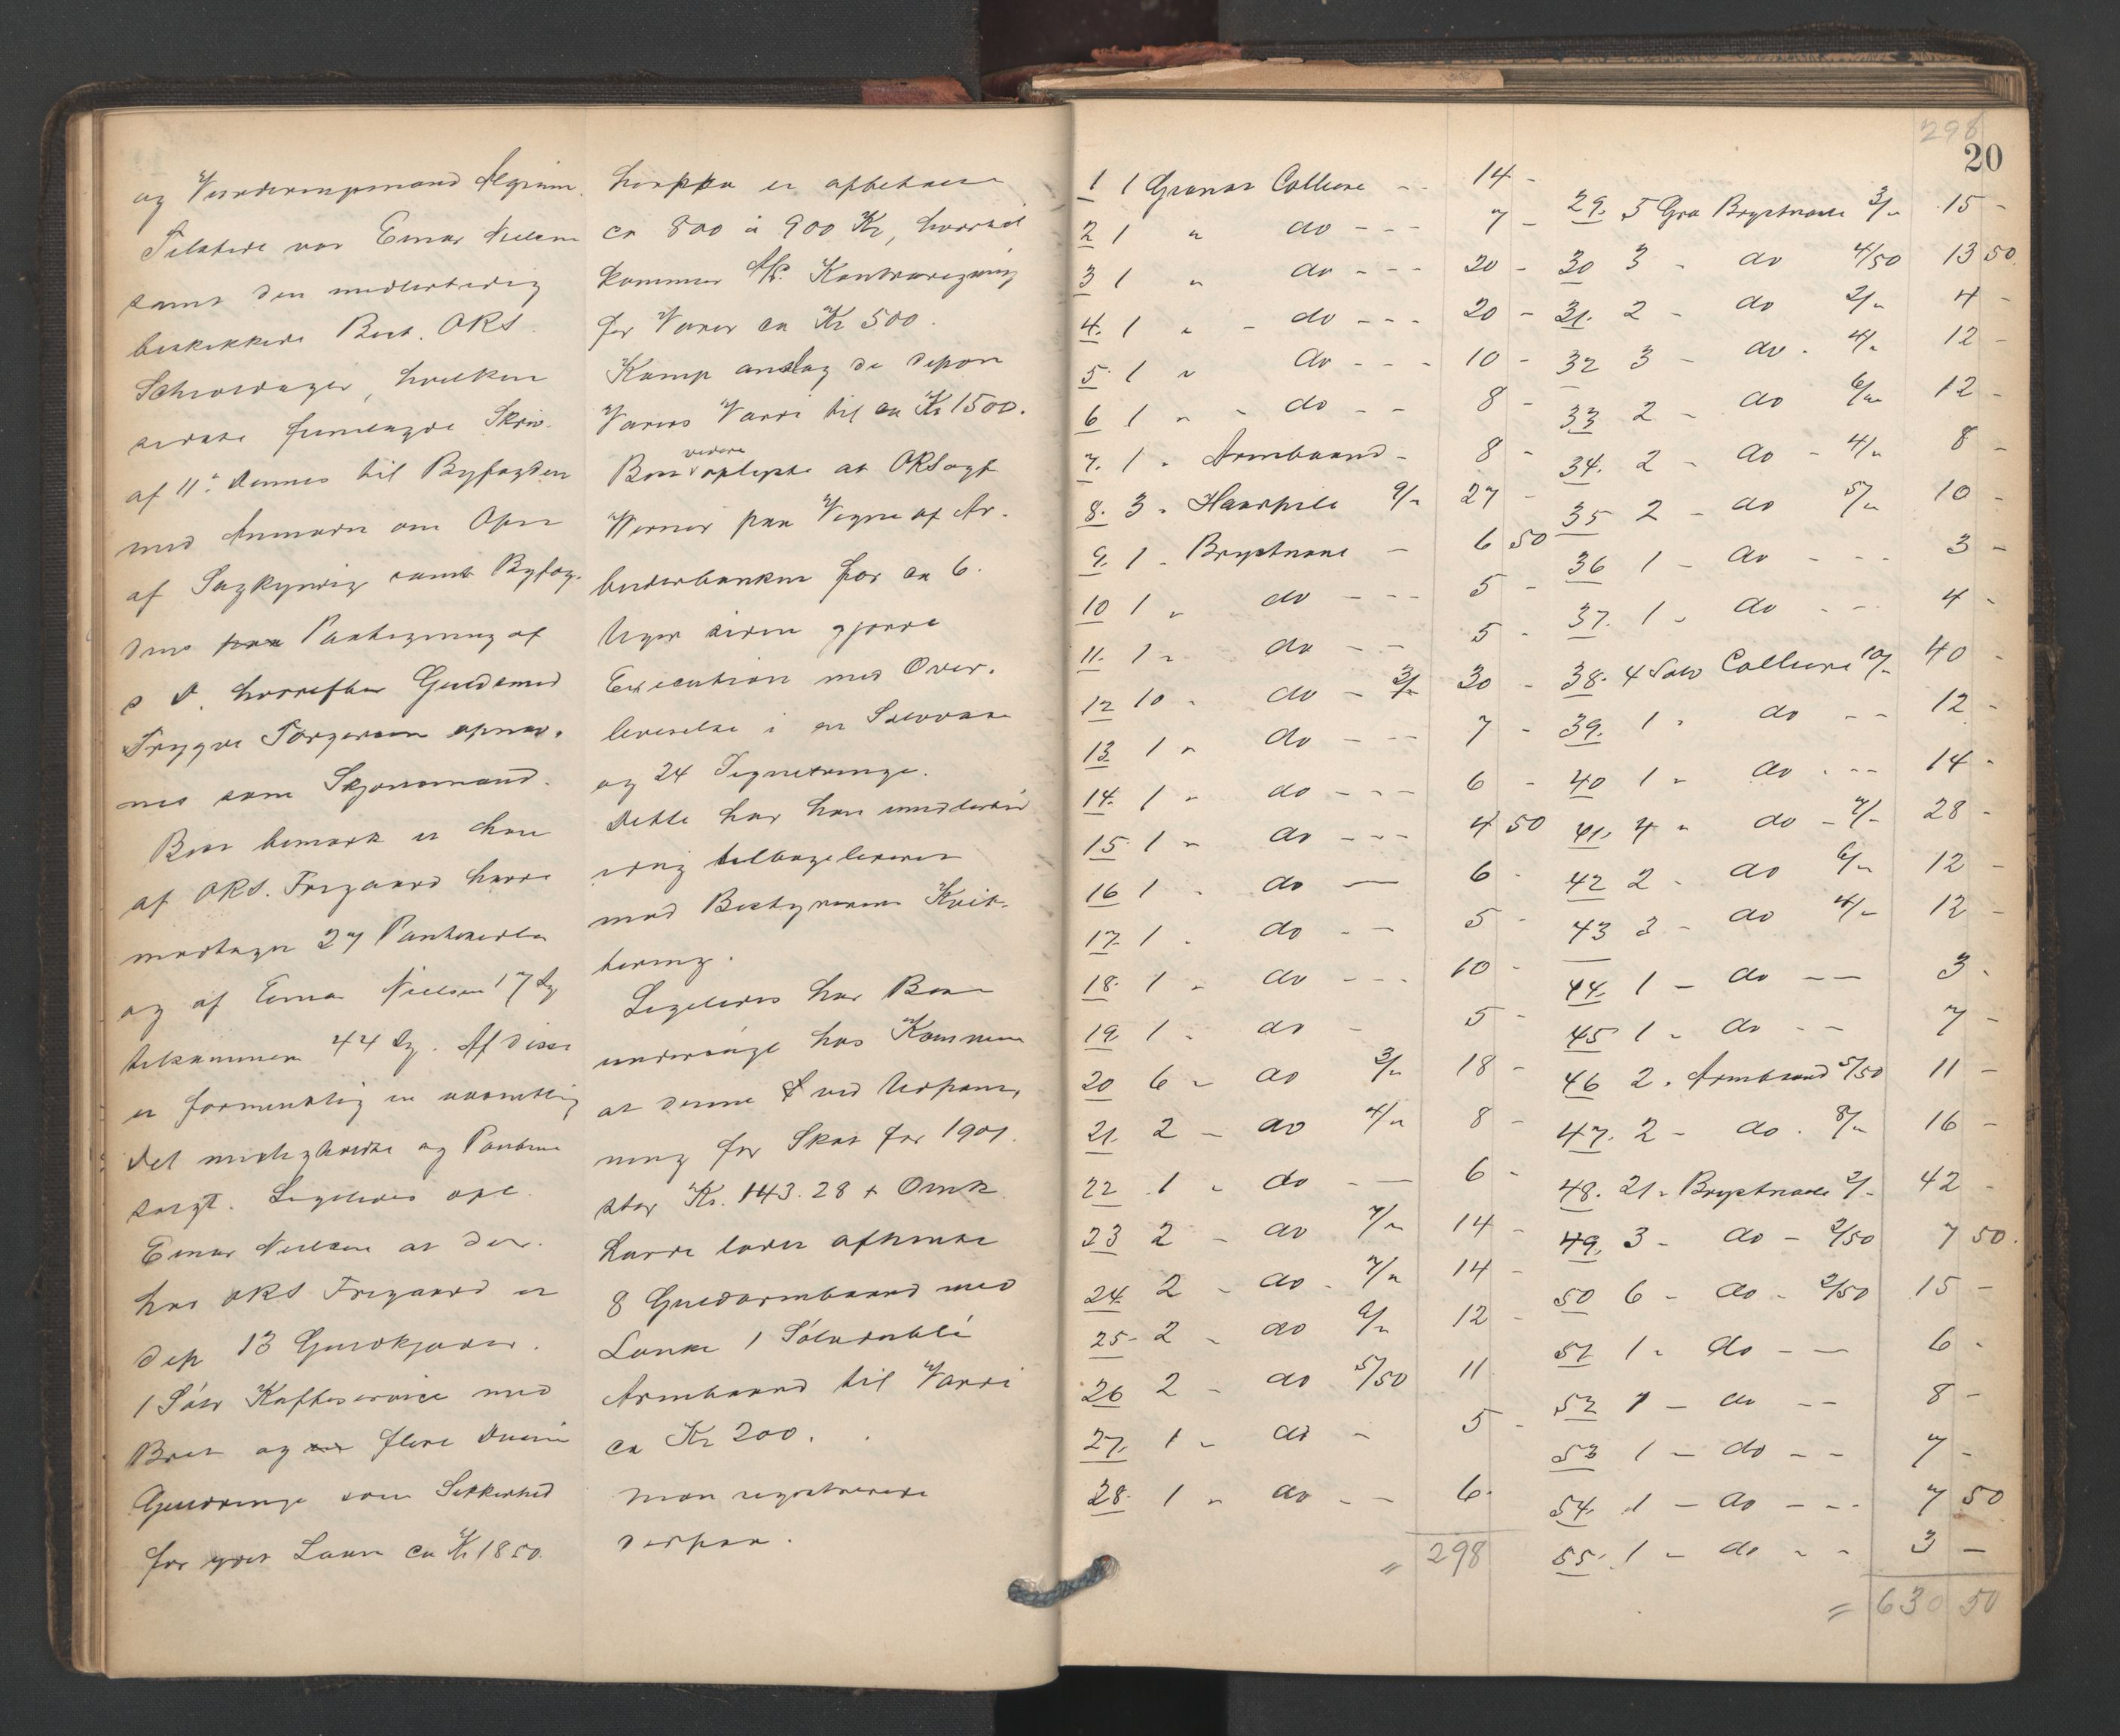 og Vurderingsmand
Tilstede var Einar Nielsen
samt den midlertidig
beskikkede Best. ORS.
Schwerdager, hvilken
sidste fremlagde Skriv.
af 11te dennes til Byfogden
med Anmodn om Opn
af Sagkyndig samt Byfog-
dens paa Paategning af
s D. hvorefter Guldsmed
Trygve Torgersen opnæv.
nes som Skjønsmand.
Boet bemærk at han
af ORS. Frigaard havde
modtaget 27 Pantesedler
og af Einar Nielsen 17 dg
tilsammen 44 dg. Af disse
er formentlig en væsentlig
Del misligholdte og Pantene
solgt. Ligeledes opl.
Einar Nielsen at der
hos ORS Frigaard er
dep 13 Guldkjæder.
1 Sølv Kaffeservice med
Bret og flere Dusin
Guldringe som Sikkerhed
for ydet Laan ca Kr 1850.
hvorpaa er afbetalt
ca 800 à 900 Kr, hvortil
kommer Kontraregning
for Varer ca Kr 500.
Komp anslog de depon
Varers Værdi til ca Kr 1500.
Boet videre oplyste at ORSagf
Werner paa Vegne af Ar-
beiderbanken for ca 6.
Uger siden gjorde
Execution med Over-
leverelse i en
og 24 Signetringe.
Dette har han imidlertid
idag tilbageleveret
mod Bestyrerens Kvit-
tering.
Ligeledes har Boet
underøige hos Kommunen
at denne ved Udpant-
ning for Skat for 1901.
stor Kr. 143.28 + Omk.
havde ladet afhente
8 Guldarmbaand med
Lænke 1 Sølvdublé
Armbaand til Værdi
ca Kr 200.
Man registrerede
derpaa.
298
20
1 1 Granat Colliere - - 14 -
2 1 " do - - - 7 -
3 1 " do - - - 20 -
4. 1 " - do - - - 20 -
5. 1 " do - - - 10 -
6 1 " - do - - 8 -
7. 1 " Armbaand - 8 -
8. 3 " Haarpile 9/- 27 -
9. 1 - Brystnaal - 6 50
10 1 " do - - - 5 -
11. 1 " do - - 5 -
12 10 - do - 3/- 30 -
13. 1 " do - - - 7 -
14. 1 " do - - - 6 -
15. 1 " do - - - 4 50
16 1 - do - 6 -
17. 1 - do - - 5 -
18. 1 - do - - - 10 -
19 1 - do - 5 -
20 6 - do 3/- 18 -
21. 2 - do 4/- 8 -
22 1 - do - - 6 -
23 2 - do 7/- 14 -
24. 2 - do - 7/- 14 -
25- 2 - do 6/- 12 -
26 2 - do 5/50 11
27. 1 - do - 5 -
28. 1 - do - - 6.
= 298
29. 5 Gra Brystnaale 3/- 15 -
30 3 - do 4/50 13 50.
31. 2 - do 2/- 4 -
32 3 - do - 4/- 12 -
33 2 - do 6/- 12 -
34. 2 - do - 4/- 8 -
35 2 - do 5/- 10 -
36 1 - do - - - 3 -
37. 1 - do - - - 4 -
38. 4 Sølv Colliere 10/- 40 -
39. 1 - do - - 12 -
40 1 - do - - - 14 -
41. 4 " do - 7/- 28 -
42 2 - do 6/- 12 -
43 3 - do 4/- 12 -
44. 1 - do - - 3 -
45 1 - do - - 7 -
46 2. Armbaand 5/50 11 -
47. 2 - do. 8/- 16 -
48. 21 - Brystnaale 2/- 42 -
49. 3 - do - 2/50 7 50.
50 6 - do - 2/50 15 -
51 1 - do - - 6 -
52 1 - do - - 8 -
53 1 - do - - 7 -
54. 1 - do - - - 7 50
55. 1 - do - - 3 -
= 630 50